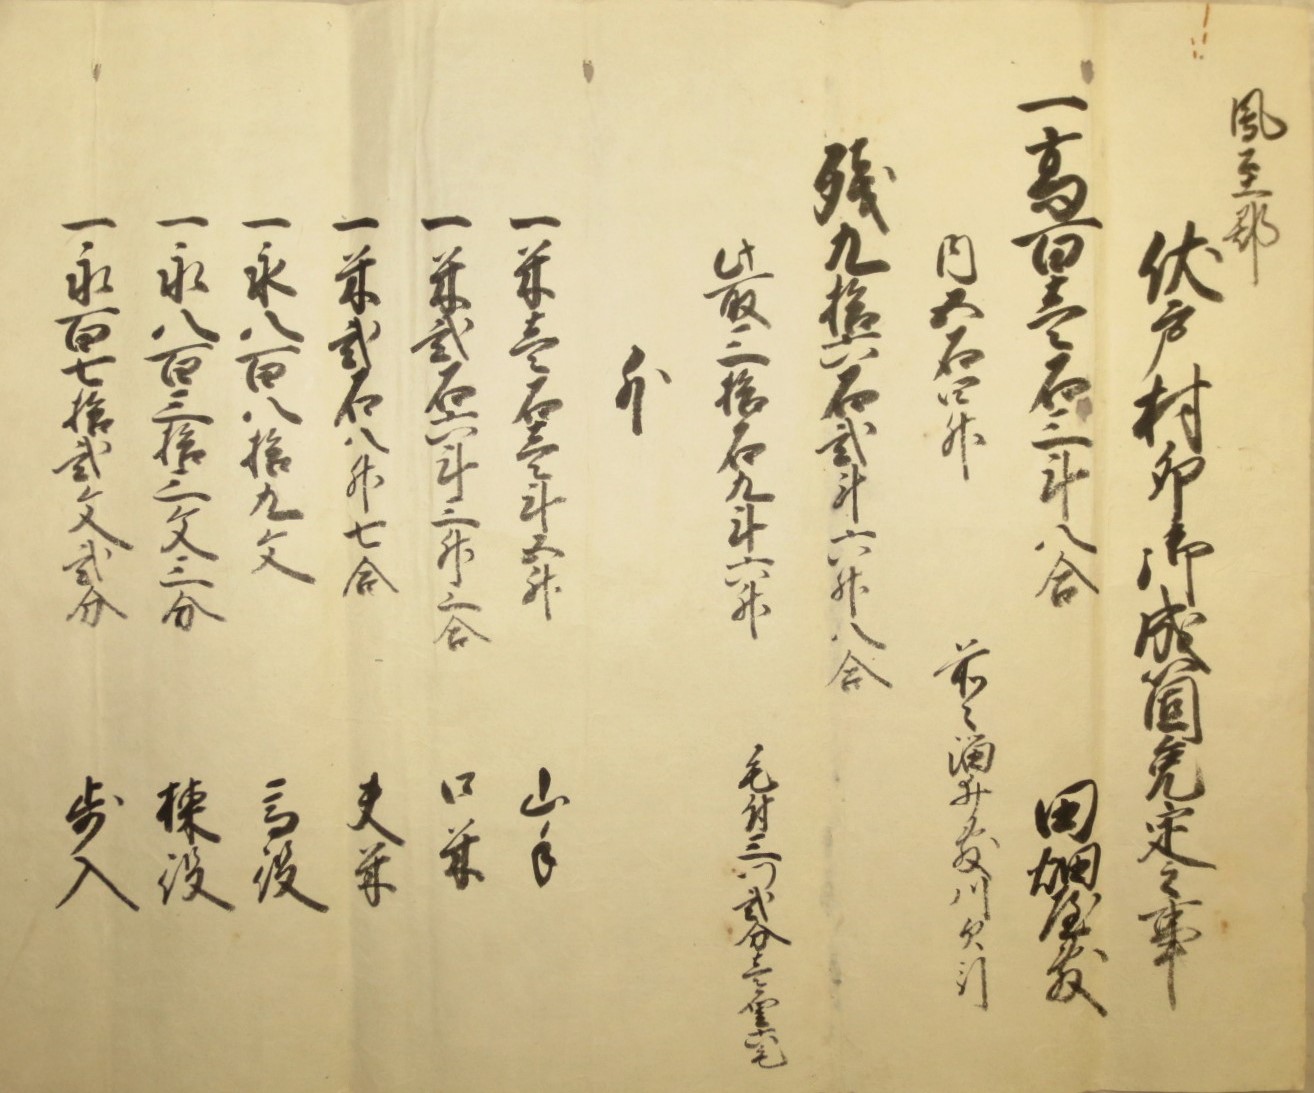 鳳至郡
伏戸村卯御成箇免定之事
一高百壱石三斗八合 田畑屋敷
内五石四升 前々溜井敷川欠引
残九拾六石弐斗六升八合
此取三拾石九斗六升 毛付三ツ弐分壱厘六毛
外
一米壱石壱斗五升 山手
一米弐石六斗三升三合 口米
一米弐石八升七合 夫米
一永八百八拾九文 高役
一永八百三拾三文三分 棟役
一永百七拾弐文弐分 歩入